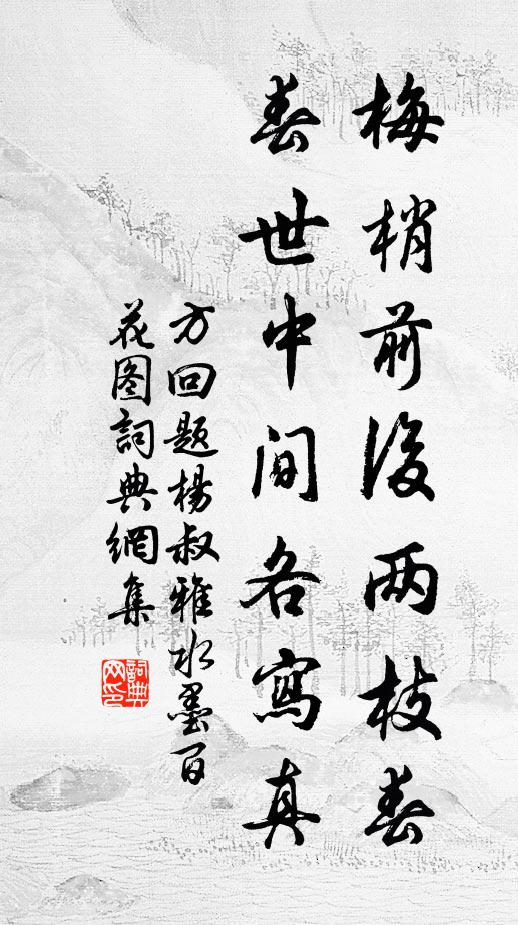 梅梢前後两枝春
春世中間各寫真
方回題楊叔雅水墨百
花图詞典網集
詞典
网印